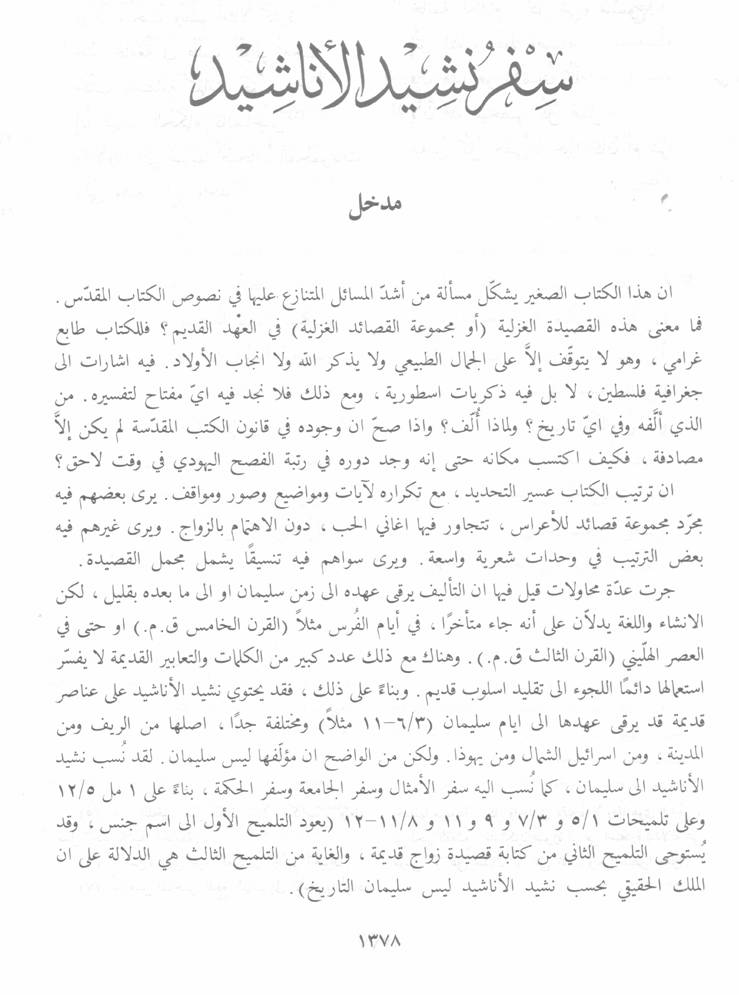 سِفْرُ نَشِيْدِ الأَنَاشِيْد
مدخل
ان هذا الكتاب الصغير يشكّل مسألة من أشدّ المسائل المتنازع عليها في نصوص الكتاب المقدّس .
فما معنى هذه القصيدة الغزلية (أو مجموعة القصائد الغزلية) في العهْد القديم ؟ فللكتاب طابع
غرامي ، وهو لا يتوقّف إلاَّ على الجمال الطبيعي ولا يذكر الله ولا انجاب الأولاد. فيه اشارات الى
جغرافية فلسطين ، لا بل فيه ذكريات اسطورية ، ومع ذلك فلا نجد فيه ايّ مفتاح لتفسيره. من
الذي ألَّفه وفي ايّ تاريخ؟ ولماذا أُلّف؟ واذا صحّ ان وجوده في قانون الكتب المقدّسة لم يكن إلاَّ
مصادفة ، فكيف اكتسب مكانه حتى إنه وجد دوره في رتبة الفصح اليهودي في وقت لاحق؟
ان ترتيب الكتاب عسير التحديد ، مع تكراره لآيات ومواضيع وصور ومواقف. يرى بعضهم فيه
مجرّد مجموعة قصائد للأعراس ، تتجاور فيها اغاني الحب ، دون الاهتمام بالزواج. ويرى غيرهم فيه
بعض الترتيب في وحدات شعرية واسعة. ويرى سواهم فيه تنسيقًا يشمل مجمل القصيدة.
جرت عدّة محاولات قيل فيها ان التأليف يرقى عهده الى زمن سليمان او الى ما بعده بقليل ، لكن
الانشاء واللغة يدلاّن على أنه جاء متأخرًا ، في أيام الفُرس مثلاً (القرن الخامس ق.م.) او حتى في
العصر الهلّيني (القرن الثالث ق.م.). وهناك مع ذلك عدد كبير من الكلمات والتعابير القديمة لا يفسّر
استعمالها دائمًا اللجوء الى تقليد اسلوب قديم. وبناءً على ذلك ، فقد يحتوي نشيد الأناشيد على عناصر
قديمة قد يرقى عهدها الى ايام سليمان (٣/٦–١١ مثلاً) ومختلفة جدًا ، اصلها من الريف ومن
المدينة ، ومن اسرائيل الشمال ومن يهوذا. ولكن من الواضح ان مؤلّفها ليس سليمان. لقد نُسب نشيد
الأناشيد الى سليمان ، كما نُسب اليه سفر الأمثال وسفر الجامعة وسفر الحكمة ، بناءً على ١ مل ٥/١٢
وعلى تلميحات ١/٥ و ٣/٧ و ٩ و ١١ و ٨/١١–١٢ (يعود التلميح الأول الى اسم جنس ، وقد
يُستوحى التلميح الثاني من كتابة قصيدة زواج قديمة ، والغاية من التلميح الثالث هي الدلالة على ان
الملك الحقيقي بحسب نشيد الأناشيد ليس سليمان التاريخ).
١٣٧٨